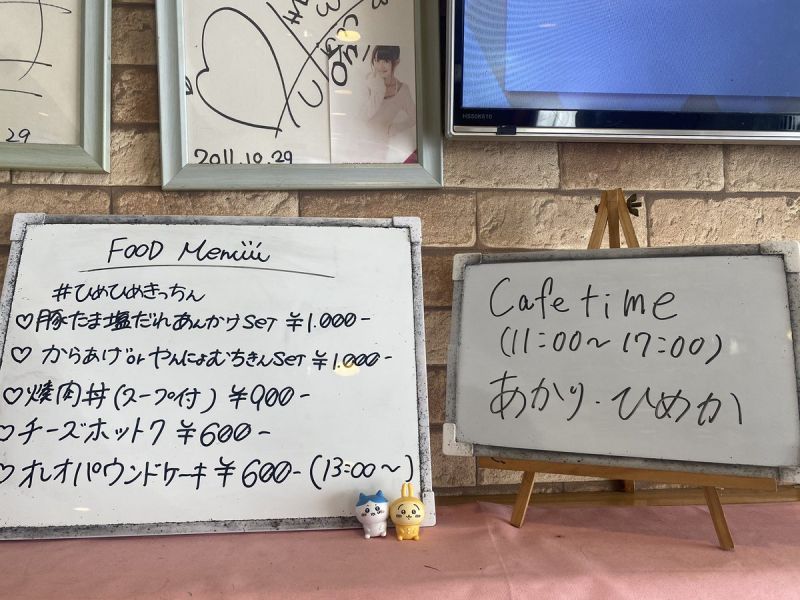 29
2011.10.29
HS50K610
FOOD Menüüü
#ひめひめきっちん
♡豚たま塩だれあんかけSET ¥1.000-
♡からあげorやんにょむちきんSET ¥1.000-
♡焼肉丼(スープ付) ¥900-
♡チーズホットク ¥600-
♡オレオパウンドケーキ ¥600- (13:00~)
Cafe time
(11:00~17:00)
あかり・ひめか